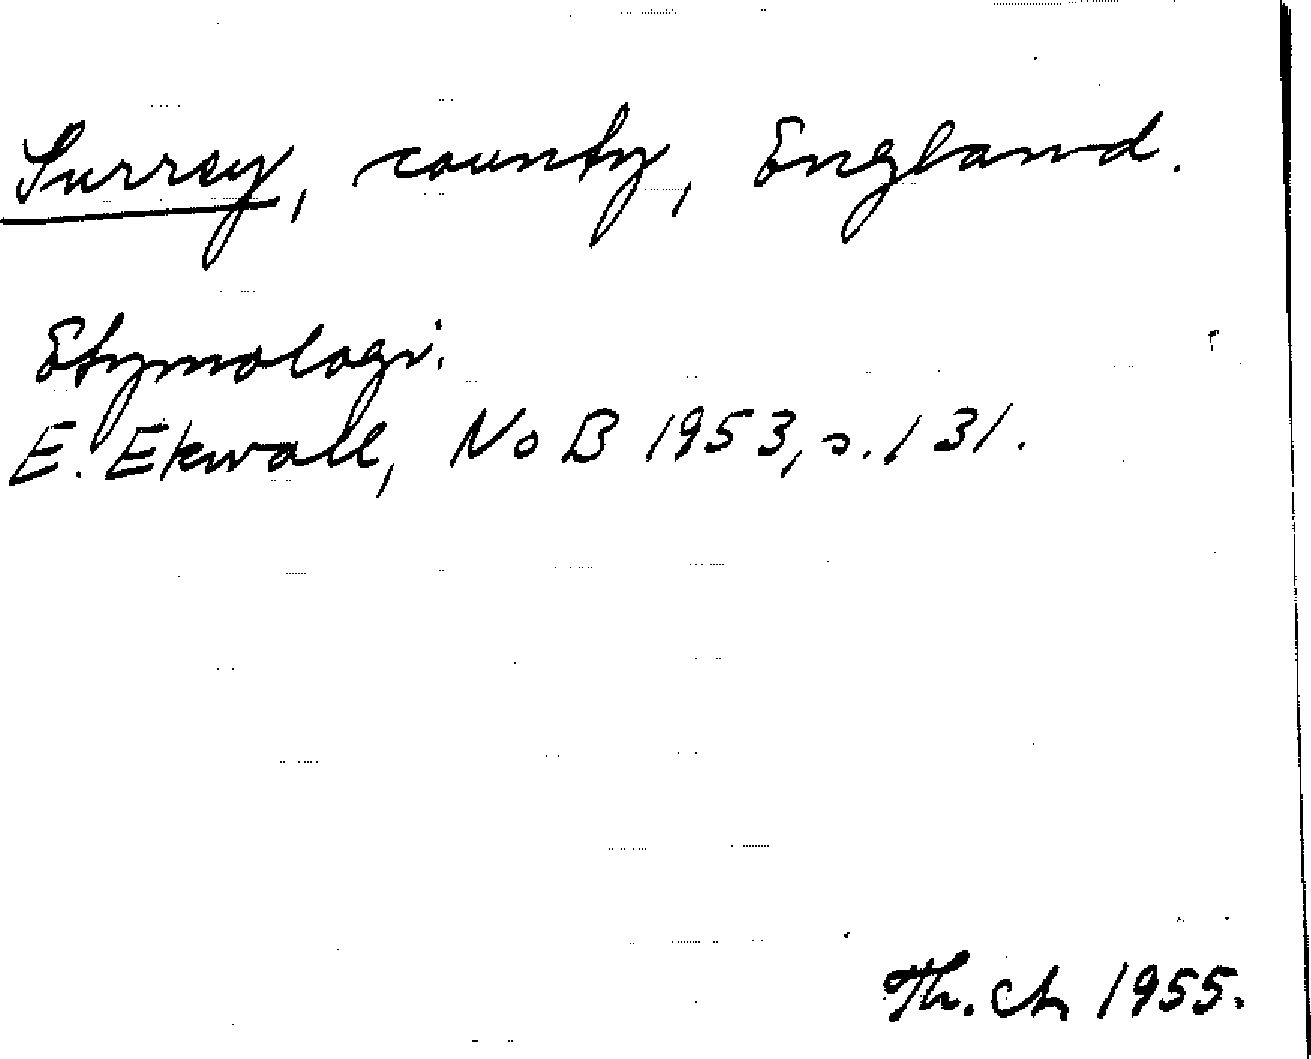 Surrey, county, England.
Etymologi.
E. Ekwall, NoB 1953, s. 131.
Th. Ch 1955.